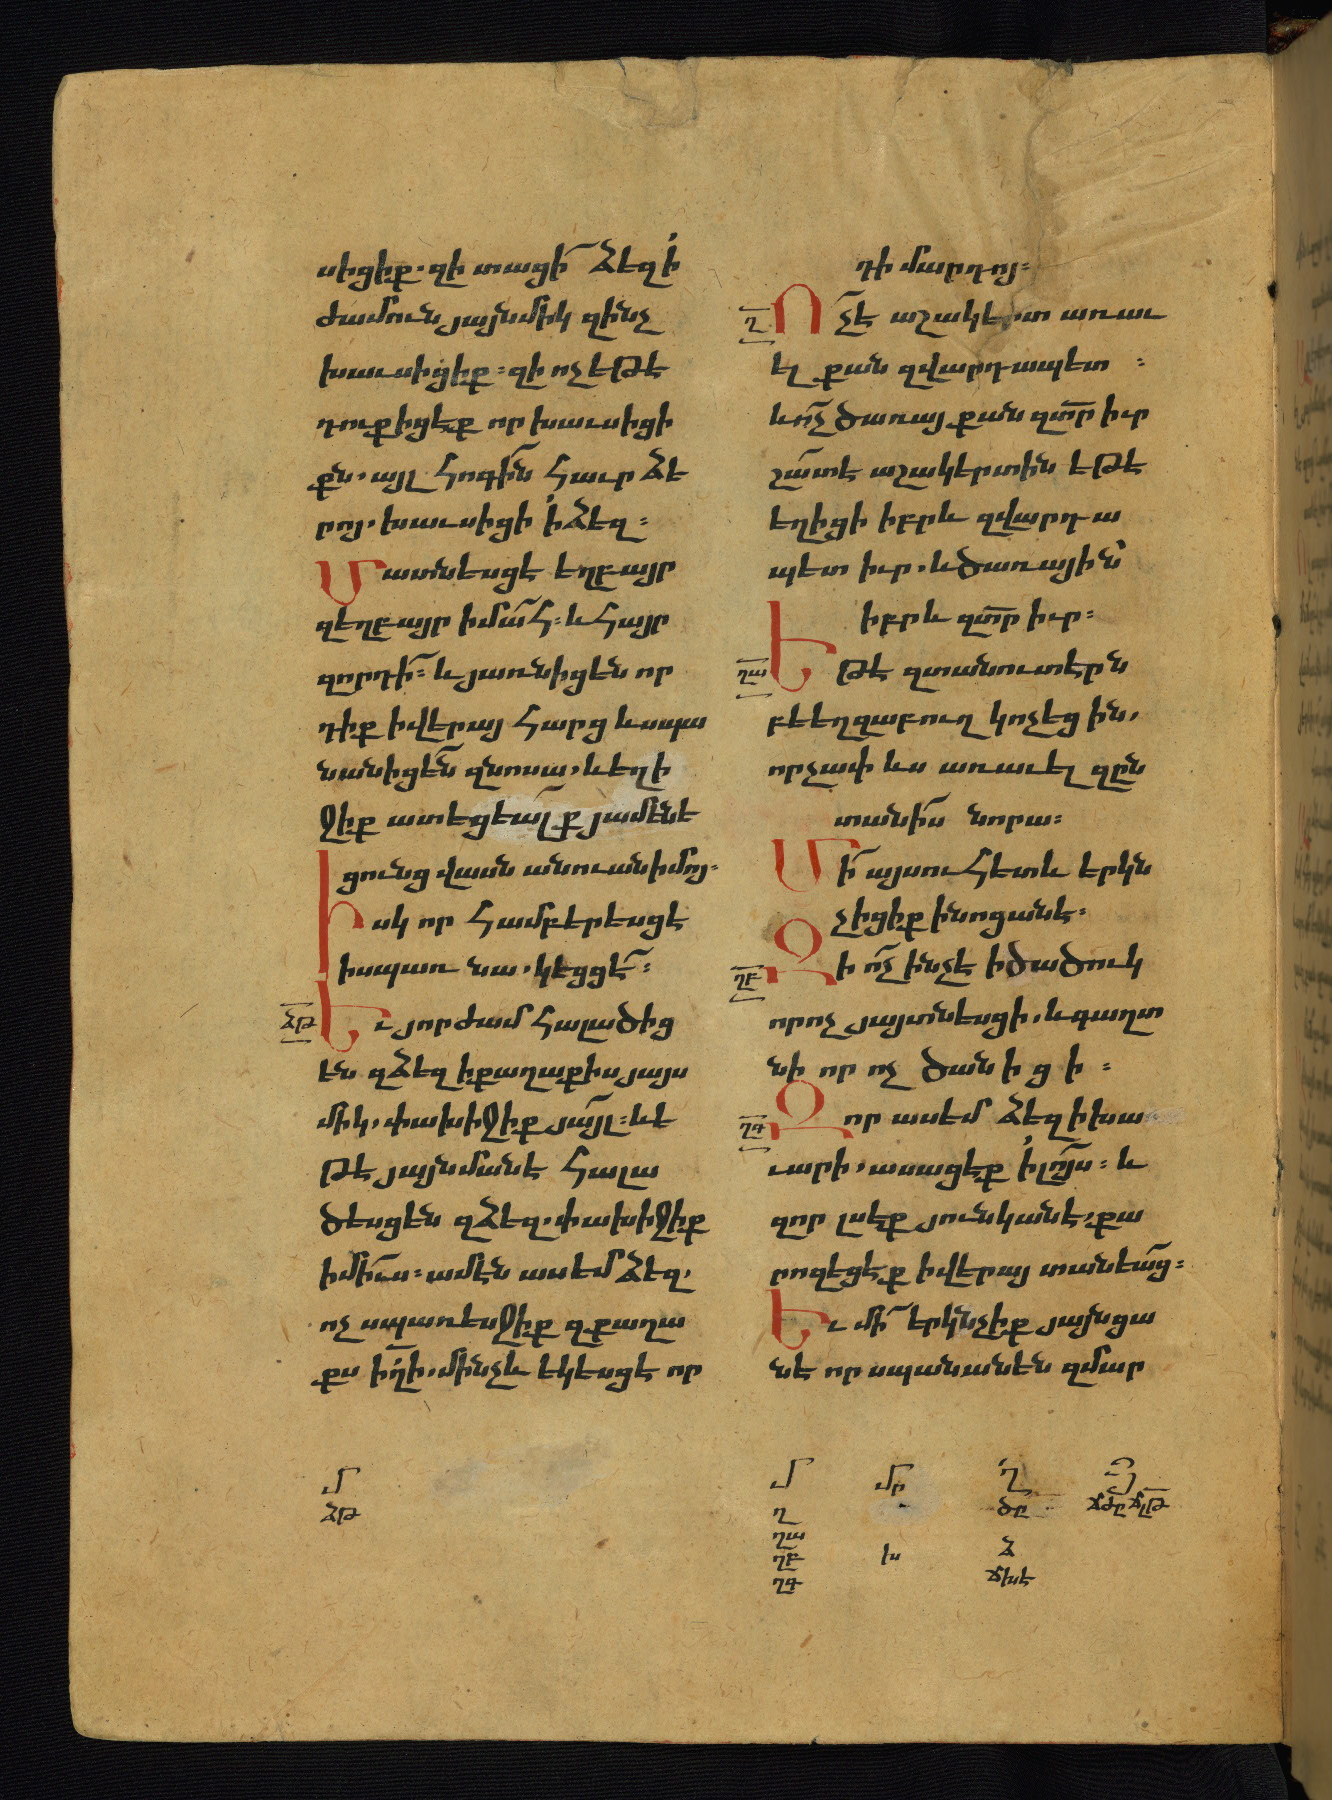 սիցիք. զի տացի՛ ձեզ ի՛
ժամուն յայնմիկ զինչ
խաւսիցիք։ զի ոչ եթէ
դուք իցէք որ խաւսիցի
քն. այլ հոգին հաւր ձե
րոյ. խաւսիցի ի՛ ձեզ։
Մատնեսցէ եղբայր
զեղբայր ի մահ։ և հայր
զորդի։ և յառնիցեն որ
դիք ի վերայ հարց և սպա
նանիցեն զնոսա. և եղի
ջիք ատեցեալք յամենե
ցունց վասն անուան իմոյ։
Իսկ որ համբերեսցէ
ի սպառ նա. կեցցէ՛։
ձթ
Եւ յորժամ հալածից
են զձեզ ի քաղաքիս յայս
միկ. փախիջիք յայլ։ և ե
թէ յայնմանէ հալա
ծեսցեն զձեզ. փախիջիք
ի միւս։ ամէն ասեմ ձեզ.
ոչ սպառեսջիք զքաղա
քս ի՞ղի. մինչև եկեսցէ որ
մ
ձթ
դի մարդոյ։
ղ
Ո՛չ է աշակերտ առաւ
ել քան զվարդապետ ։
և ո՛չ ծառայ քան զտր իւր
շատ է աշակերտին եթէ
եղիցի իբրև զվարդա
պետ իւր. և ծառային
իբրև զտր իւր։
ղա
Եթէ զտանուտէրն
բէեղզաբուղ կոչեցին.
որչափ ևս առաւել զըն
տանիս նորա։
Մի՛ այսուհետև երկն
չիցիք ի նոցանէ։
ղբ
Զի ո՛չ ինչ է ի ծածուկ
որ ոչ յայտնեսցի. և գաղտ
նի որ ոչ ծանիցի ։
ղգ
Զոր ասեմ ձեզ ի խա
ւարի. ասացէք ի՛ լոյս։ և
զոր լսէք յունկանէ. քա
րոզեցէք ի վերայ տանեաց։
Եւ մի՛ երկնչիք յայնցա
նէ որ սպանանեն զմար
մ մր ղ յ
ղ ծը ճժը ճլթ
ղա
ղբ ի ձ
ղգ ճխե